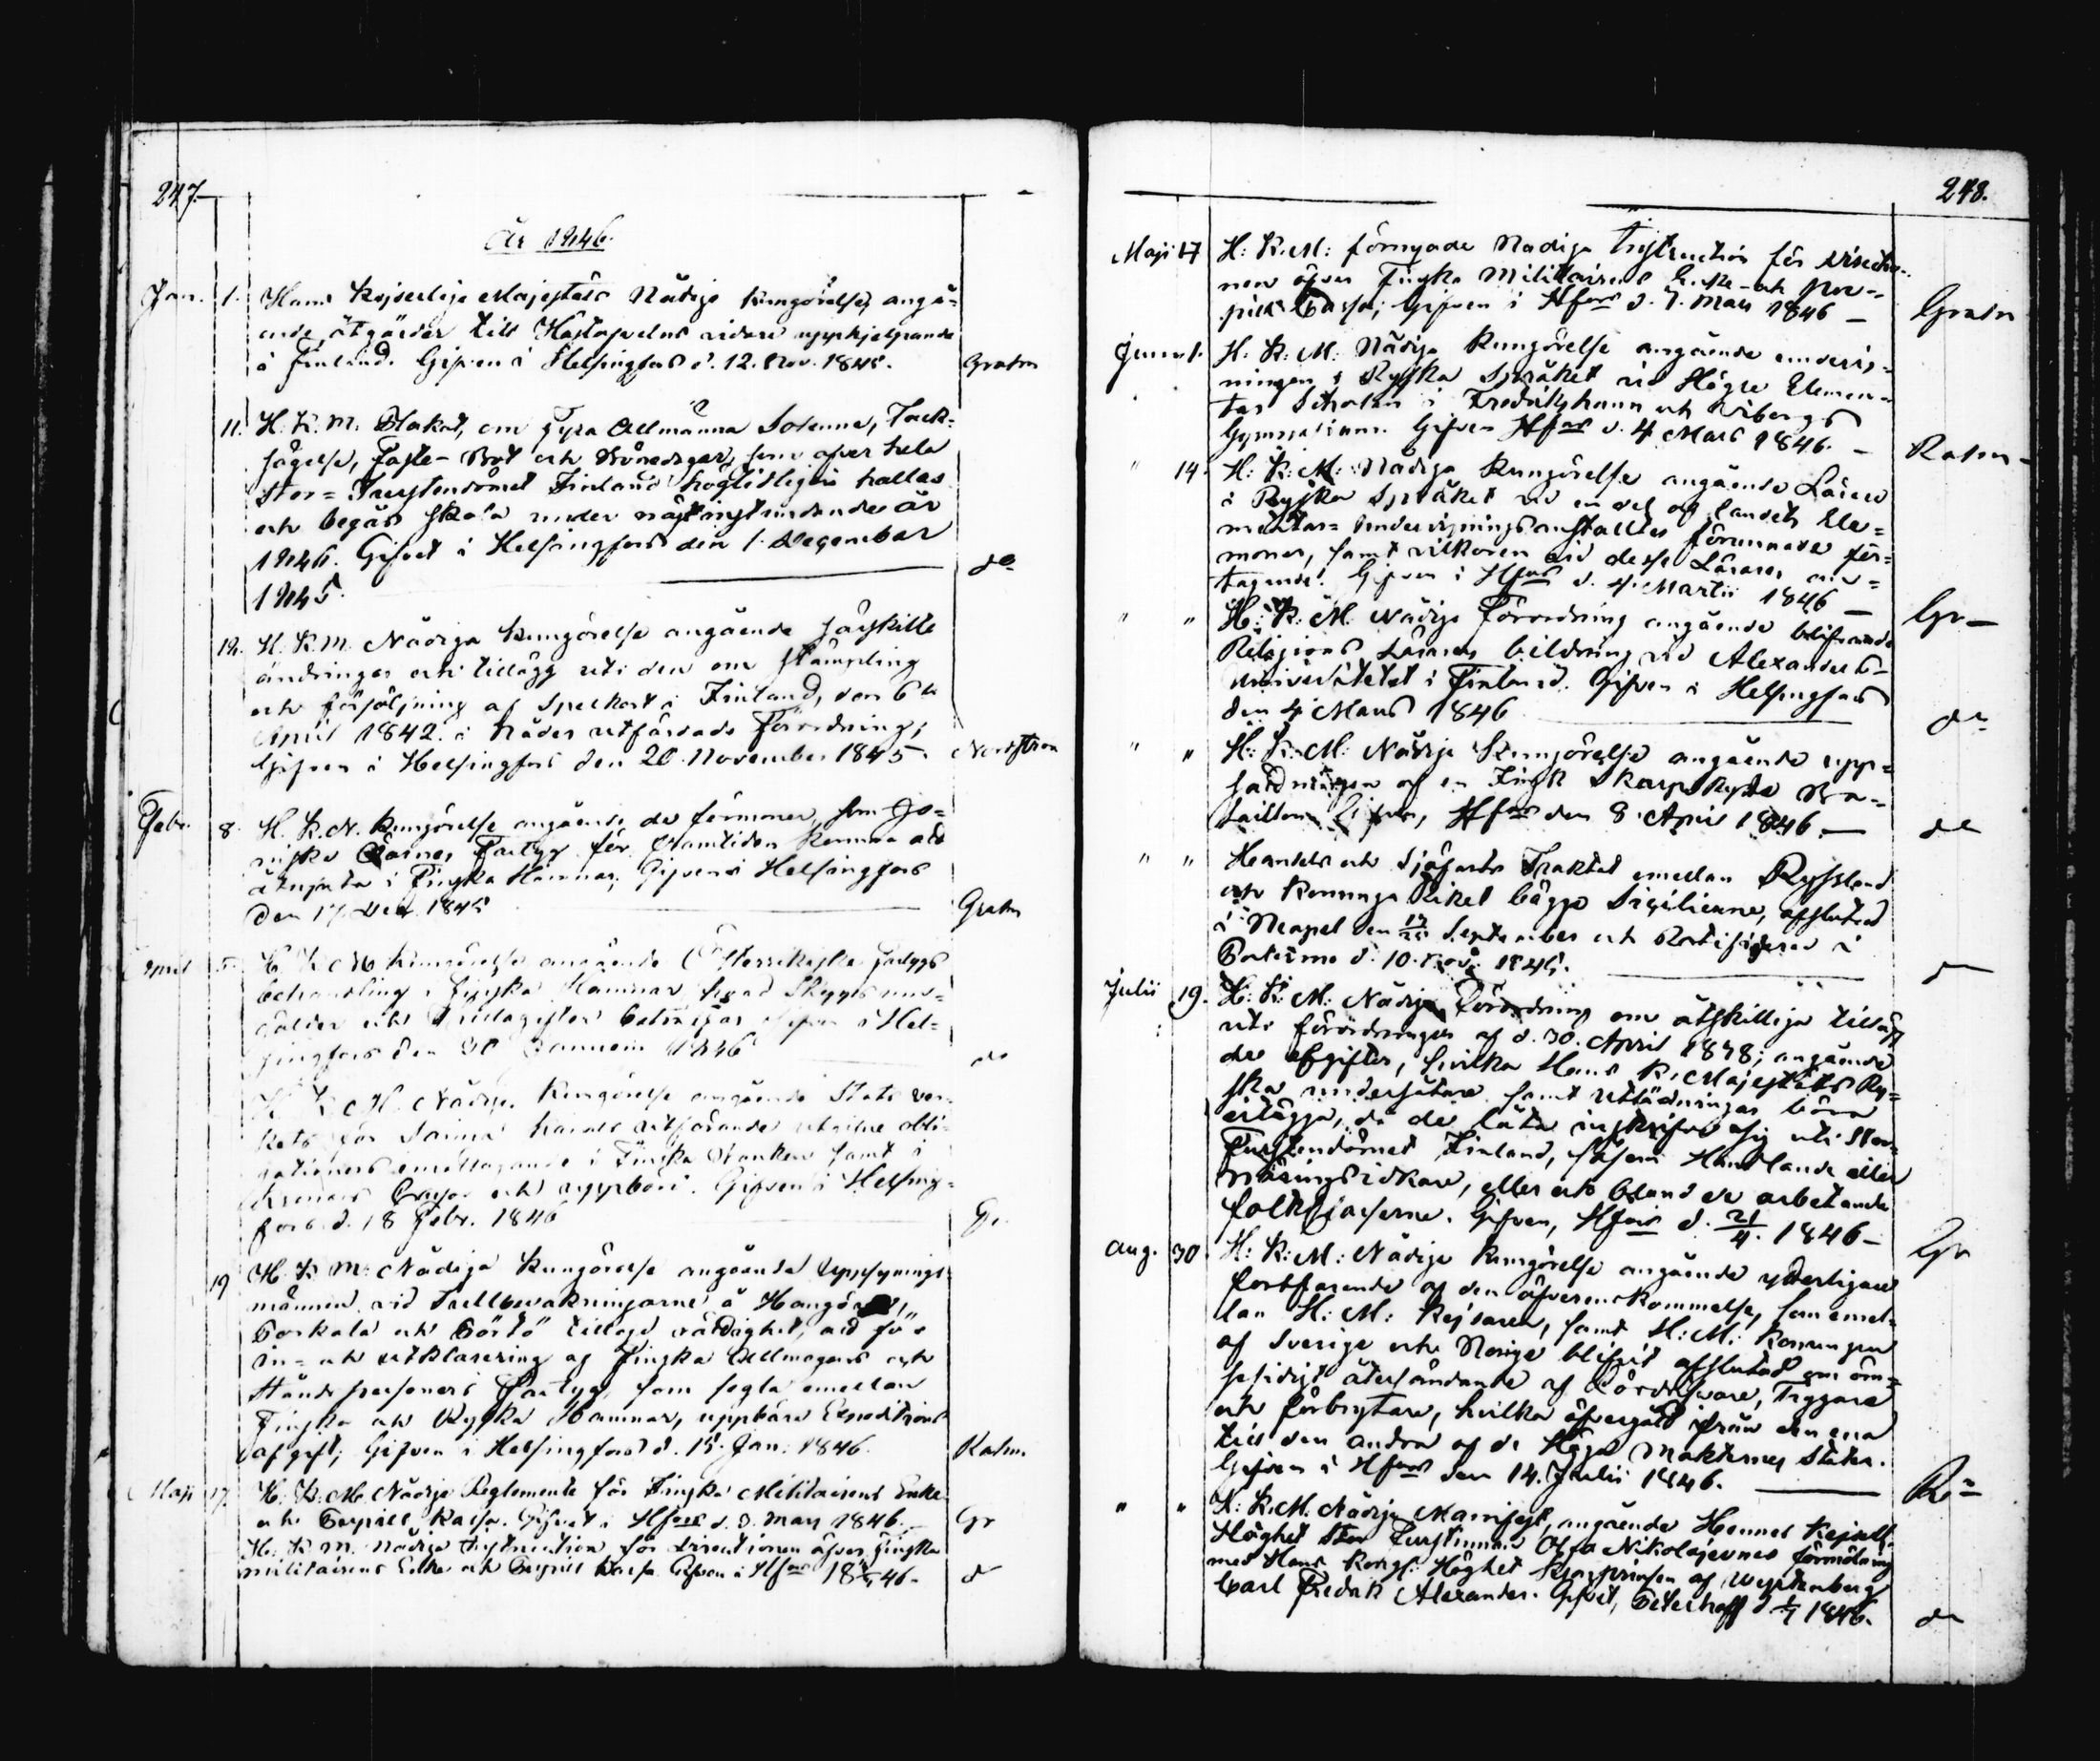 247.
År 1846.
Jan. 1. Hans Kejserliga Majestäts Nådiga Kungörelse, angå-
ende åtgärder till Hästafvelns vidare upphjelpande
i Finland. Gifven i Helsingfors d. 12. Nov. 1845. Grahn
11. H. K. M. Plakat, om Fyra Allmänna Solenna, Tack-
sägelse, Faste- Bot och Bönedagar, som öfver hela
Stor=Furstendömet Finland högtidligen hållas
och begås skola under nästinstundande år
1846. Gifvet i Helsingfors den 1. December
1845. do
12. H. K. M. Nådiga Kungörelse angående särskilte
ändringar och tillägg uti den om stämpling
och försäljning af Spelkort i Finland, den 6te
April 1842 i Nåder utfärdade Förordning;
Gifven i Helsingfors den 20 November 1845. Nordstrøm
Febr. 8. H. K. M. Kungörelse angående de förmoner, som Jo-
niska Öarnes Fartyg för framtiden komma att
åtnjuta i Finska Hamnar; Gifven i Helsingfors
den 17 Dec. 1845 Grahn
April 5. H. K. M. Kungörelse angående Österrikiska fartygs
behandling i Finska Hamnar, hvad Skeppsum-
gälder och Tullafgifter beträffar. Gifven i Hel-
singfors den 30 Januarii 1846 do
H. K. M. Nådiga Kungörelse angående Stats ver-
kets för Saima kanals utförande utgifne obli-
gationers emottagande i Finska Banken samt i
Kronans Cassor och uppbörd. Gifven i Helsing-
fors d. 18 Febr. 1846 Gr.
19 H. K. M. Nådiga Kungörelse angående Uppsynings-
männen vid Tullbevakningarne å Hangö,
Porkala och Pörtö tillagd rättighet, att för
in- och utklarering af Finska Allmogens och
Ståndspersoners Fartyg, som segla emellan
Finska och Ryska Hamnar, uppbära Expeditions
afgift; Gifven i Helsingfors d. 15. Jan. 1846. Ratm.
Maji 17. H. K. M. Nådiga Reglemente för Finska Militairens Enke-
och Pupill Kassa. Gifvet i Hfors d. 3. Mars 1846. Gr
H. K. M. Nådiga Instruction för Directionen öfver Finska
militairens Enke och Pupill Kassa. Gifven i Hfors 1846. d
248.
Maji 17 H: K. M: förnyade Nådiga Instruction för Directio-
nen öfver Finska Militairens Enke- och Pu-
pill Cassa; Gifven i Hfors d. 7. Mars 1846 — Grahn
Junii 1. H: K: M: Nådiga Kungörelse angående undervis-
ningen i Ryska Språket vid Högre Elemen-
tar Scholan i Fredrikshamn och Wiborgs
Gymnasium. Gifven Hfors d. 4 Mars 1846. — Ratm —
" 14. H: K: M: Nådiga Kungörelse angående Lärare
i Ryska Språket vid en del af landets Ele-
mentar= Undervisningsanstalter förunnade för-
moner, samt vilkoren vid desse Lärares an-
tagande. Gifven i Hfors d. 4. Martii 1846 — Gr —
" " H: K: M. Nådiga Förordning angående blifvande
Religions Lärares bildning vid Alexanders-
Universitetet i Finland. Gifven i Helsingfors
den 4 Mars 1846 do
" " H: K: M: Nådiga Kungörelse angående upp-
sättningen af en Finsk Skarpskytte Ba-
taillon Gifven, Hfors den 8 April 1846. — do
" " Handels och Sjöfarts Traktat emellan Ryssland
och Konunga Riket bägge Sicilierne, afslutad
i Neapel den 13/25 September och Ratificerad i
Palermo d. 10. Nov. 1845. d
Julii 19. H: K: M: Nådiga Förordning om åtskilliga tillägg
uti förordningen af d. 30. April 1838; angående
de afgifter, hvilka Hans K. Majestäts Ry-
ska undersåtare samt utländningar böra
erlägga, då de låta inskrifva sig uti Stor-
Furstendömet Finland, såsom Handlande eller
näringsidkare, eller ock bland de arbetande
folkklasserne. Gifven, Hfors d. 21/4. 1846 — Gr
Aug. 30 H: K: M: Nådiga Kungörelse angående ytterligare
fortfarande af den öfverenskommelse, som emel-
lan H: M: Kejsaren, samt H: M: Konungen
af Sverige och Norige blifvit afslutad om öm-
sesidigt återsändande af Lösdrifvare, Tiggare
och förbrytare, hvilka öfvergått ifrån den ena
till den andra af de Höga Makternes Stater.
Gifven i Hfors den 14. Julii 1846. Ra
" " H: K. M. Nådiga Manifest, angående Hennes Kejserl.
Höghet Stor Furstinnan Olga Nikolajevnas förmälning
med Hans Kongl: Höghet Kronprinsen af Würtemberg
Carl Fredrik Alexander. Gifvet, Peterhoff d. 1/7 1846. do